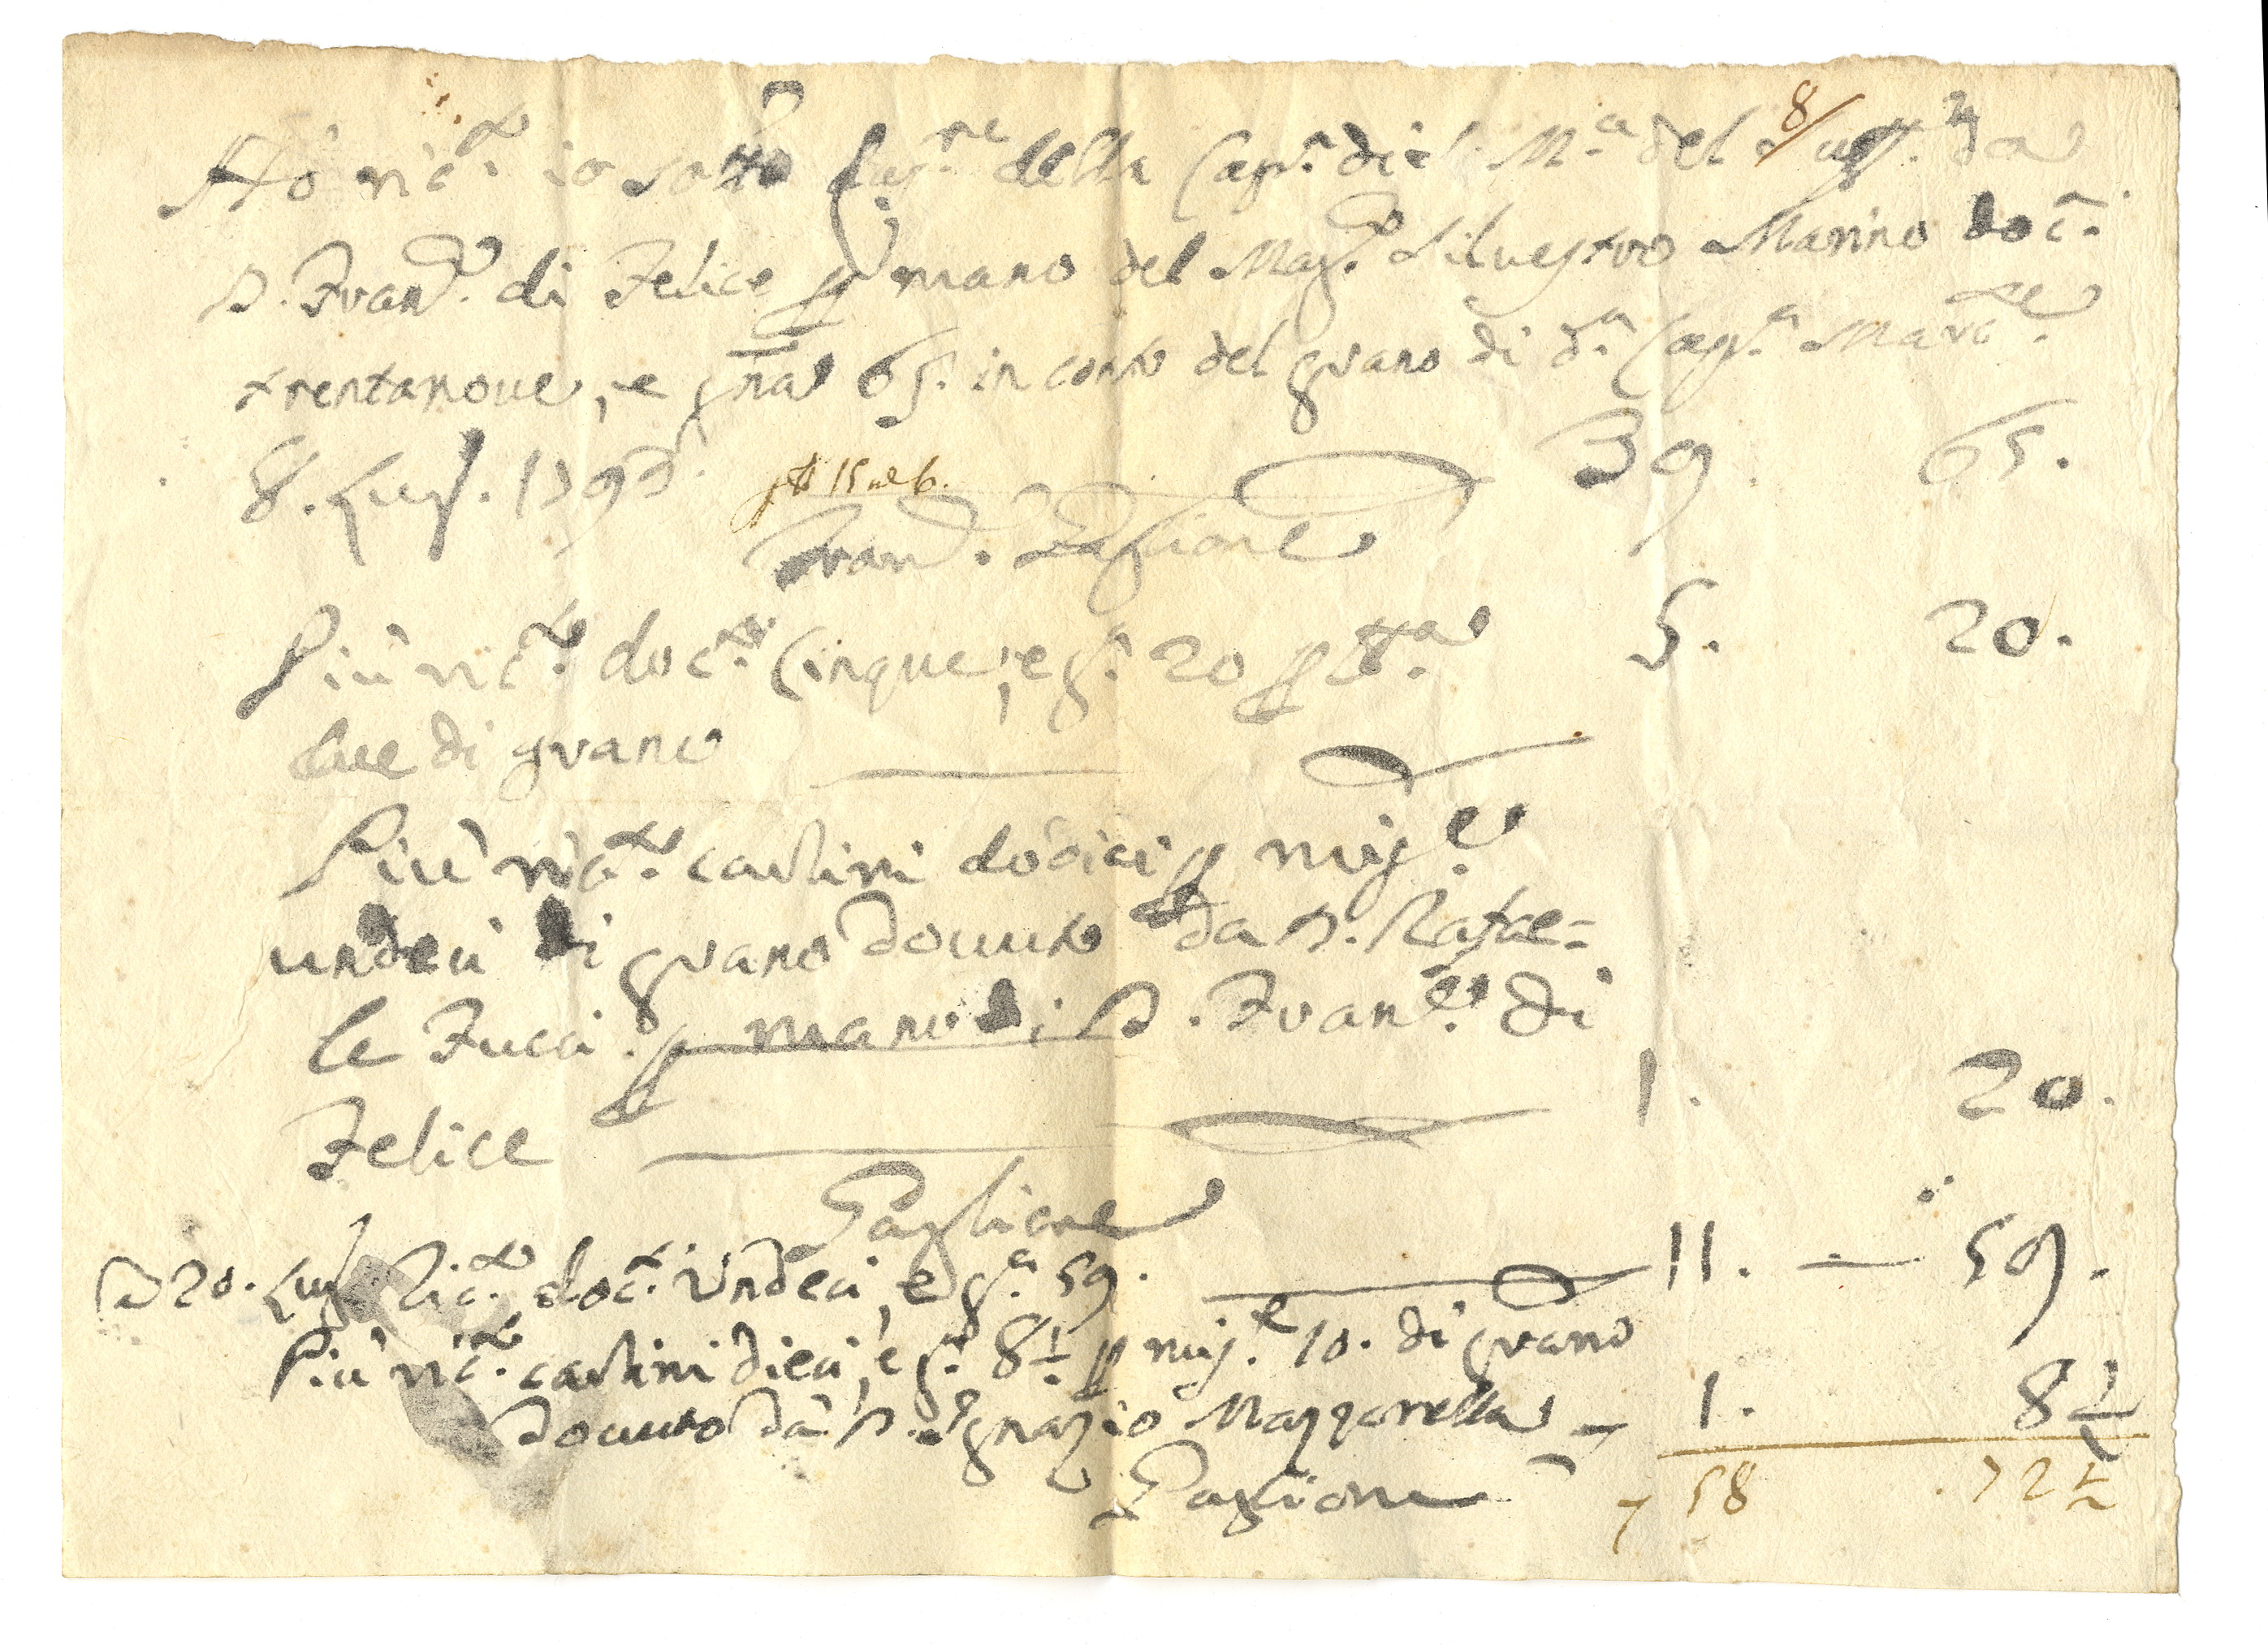 Hò ric.to io sotto della Capp.a di S. M.a del da
D. Fran.co di Felice p mano del Mag.co Siluestro Marino doc.ti
trentanoue, e gna 65. in conto del grano di d.a Capp.a
8. Lug. 179 39. 65.
Fran.co Paglione
Più ric.to doc.ti Cinque, e g.a 20 p 5. 20.
due di grano
Più ric.to carlini dodici p mis.e
undeci di grano douuto da D. Rafae=
le Fucci. p mano di D. Fran.co di
Felice 1. 20.
Paglione
A 20. Lug. Ric.to doc.ti Undeci, e g.a 59. 11. — 59.
Più ric.to carlini dieci, e g.a 8½ p mis.e 10. di grano
douuto da D. Ignazio Mazzarella — 1. 8½
Paglione 58 . 72½